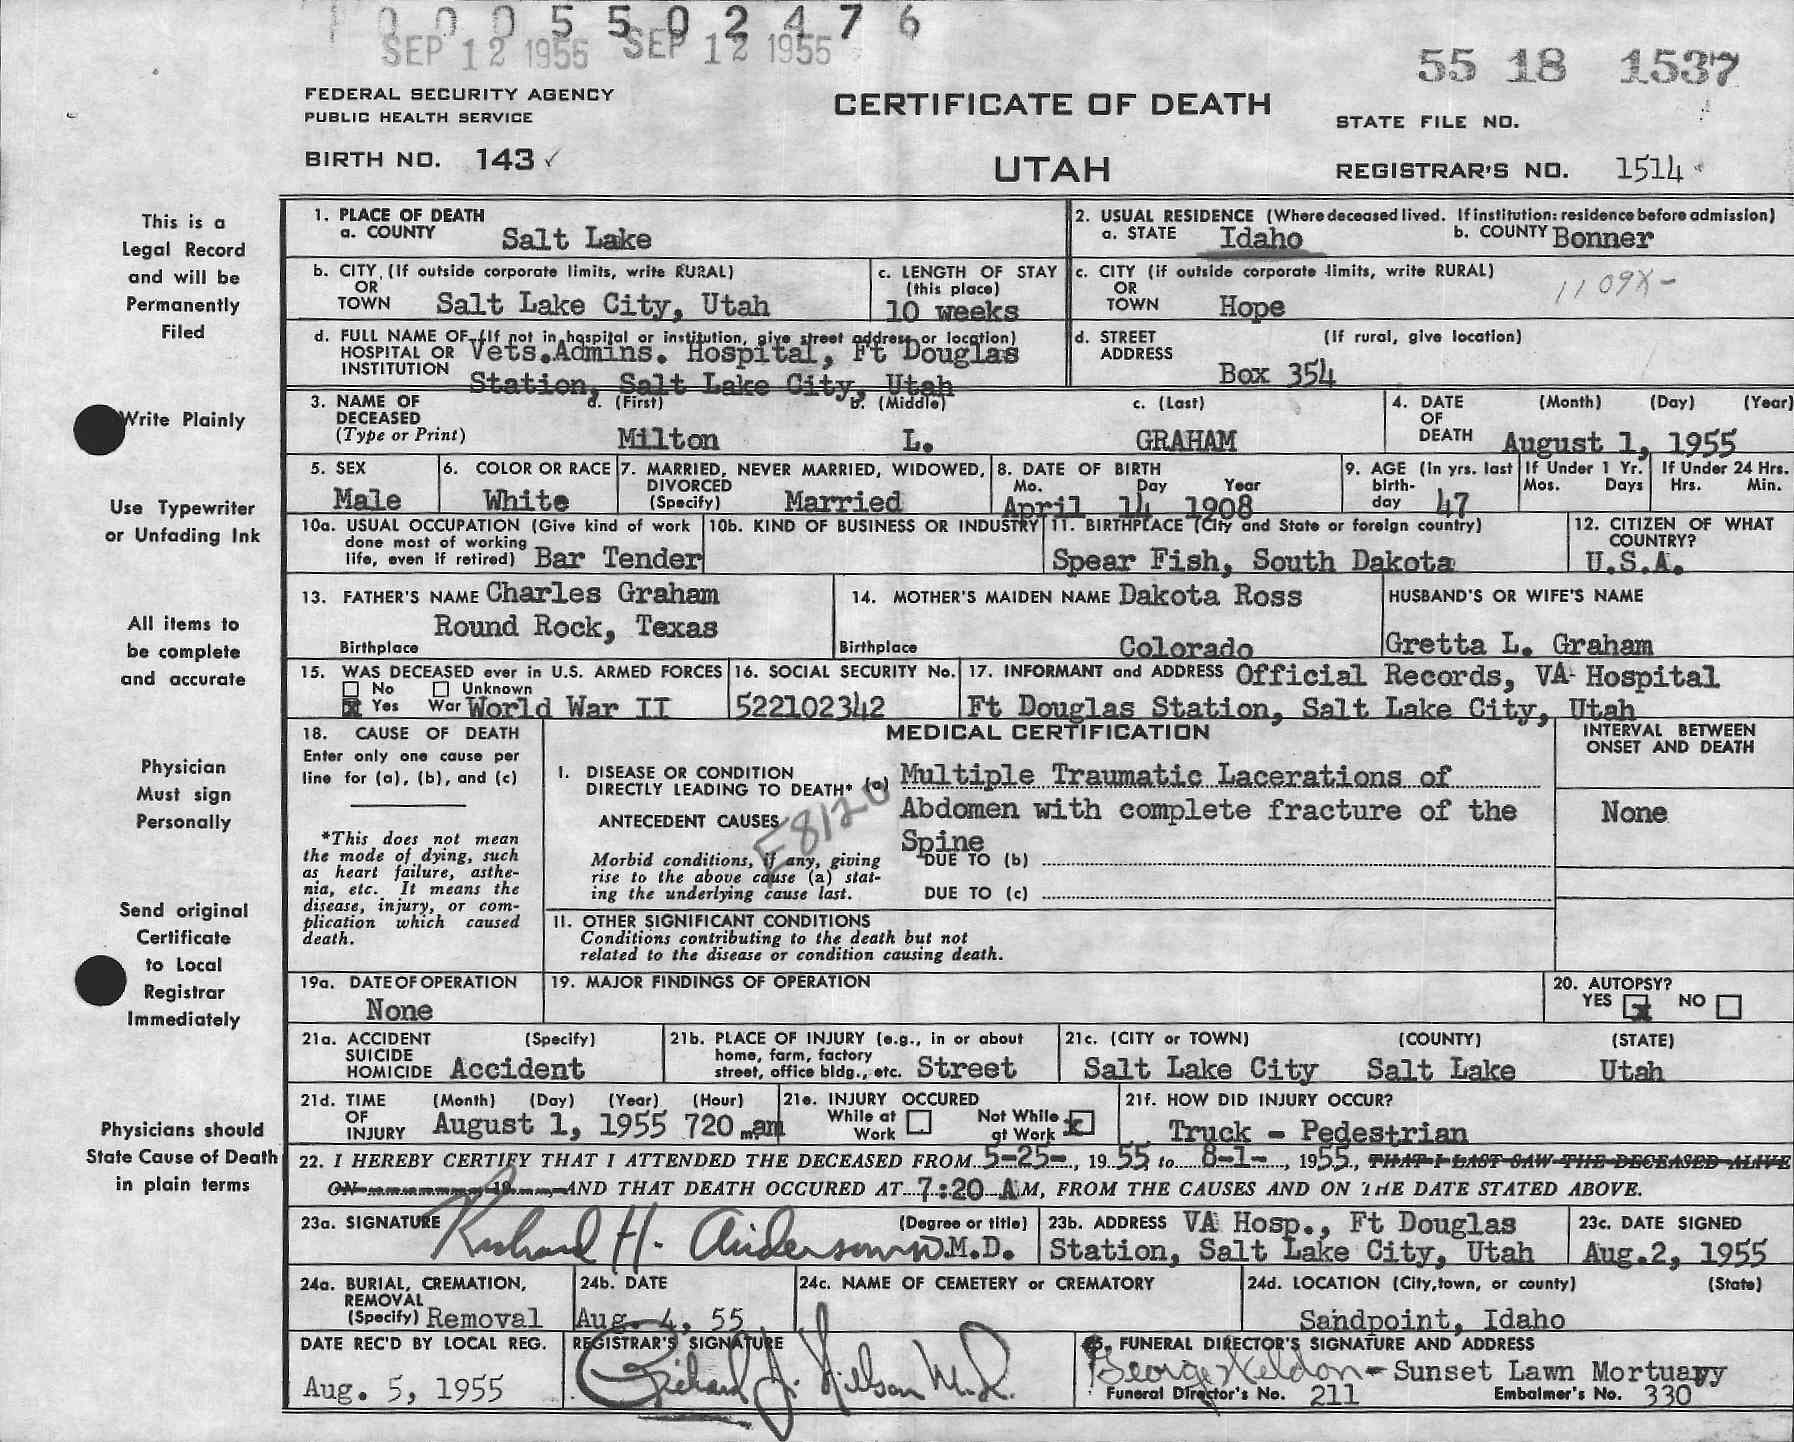 0 0 0 5 5 0 2 4 7 6
SEP 12 1955 SEP 12 1955
55 18 1537
FEDERAL SECURITY AGENCY
PUBLIC HEALTH SERVICE
CERTIFICATE OF DEATH
STATE FILE NO.
BIRTH NO. 143 ✓
UTAH
REGISTRAR'S NO. 1514
This is a
Legal Record
and will be
Permanently
Filed
Write Plainly
Use Typewriter
or Unfading Ink
All items to
be complete
and accurate
Physician
Must sign
Personally
Send original
Certificate
to Local
Registrar
Immediately
Physicians should
State Cause of Death
in plain terms
1. PLACE OF DEATH
a. COUNTY Salt Lake
2. USUAL RESIDENCE (Where deceased lived. If institution: residence before admission)
a. STATE Idaho b. COUNTY Bonner
b. CITY (If outside corporate limits, write RURAL)
OR
TOWN Salt Lake City, Utah
c. LENGTH OF STAY
(this place)
10 weeks
c. CITY (if outside corporate limits, write RURAL)
OR
TOWN Hope
1109X-
d. FULL NAME OF (If not in hospital or institution, give street address or location)
HOSPITAL OR
INSTITUTION
Vets.Admins. Hospital, Ft Douglas
Station, Salt Lake City, Utah
d. STREET (If rural, give location)
ADDRESS
Box 354
3. NAME OF
DECEASED
(Type or Print)
a. (First) b. (Middle) c. (Last)
Milton L. GRAHAM
4. DATE (Month) (Day) (Year)
OF
DEATH August 1, 1955
5. SEX
Male
6. COLOR OR RACE
White
7. MARRIED, NEVER MARRIED, WIDOWED,
DIVORCED
(Specify) Married
8. DATE OF BIRTH
Mo. Day Year
April 14 1908
9. AGE (In yrs. last
birth-
day 47
If Under 1 Yr.
Mos. Days
If Under 24 Hrs.
Hrs. Min.
10a. USUAL OCCUPATION (Give kind of work
done most of working
life, even if retired) Bar Tender
10b. KIND OF BUSINESS OR INDUSTRY
11. BIRTHPLACE (City and State or foreign country)
Spear Fish, South Dakota
12. CITIZEN OF WHAT
COUNTRY?
U.S.A.
13. FATHER'S NAME Charles Graham
Round Rock, Texas
Birthplace
14. MOTHER'S MAIDEN NAME Dakota Ross
Birthplace Colorado
HUSBAND'S OR WIFE'S NAME
Gretta L. Graham
15. WAS DECEASED ever in U.S. ARMED FORCES
No Unknown
Yes War World War II
16. SOCIAL SECURITY No.
522102342
17. INFORMANT and ADDRESS Official Records, VA Hospital
Ft Douglas Station, Salt Lake City, Utah
18. CAUSE OF DEATH
Enter only one cause per
line for (a), (b), and (c)
*This does not mean
the mode of dying, such
as heart failure, asthe-
nia, etc. It means the
disease, injury, or com-
plication which caused
death.
MEDICAL CERTIFICATION
I. DISEASE OR CONDITION
DIRECTLY LEADING TO DEATH* (a) Multiple Traumatic Lacerations of
Abdomen with complete fracture of the
Spine
E8120
ANTECEDENT CAUSES
Morbid conditions, if any, giving
rise to the above cause (a) stat-
ing the underlying cause last.
DUE TO (b)
DUE TO (c)
II. OTHER SIGNIFICANT CONDITIONS
Conditions contributing to the death but not
related to the disease or condition causing death.
INTERVAL BETWEEN
ONSET AND DEATH
None
19a. DATE OF OPERATION
None
19. MAJOR FINDINGS OF OPERATION
20. AUTOPSY?
YES X NO
21a. ACCIDENT (Specify)
SUICIDE
HOMICIDE Accident
21b. PLACE OF INJURY (e.g., in or about
home, farm, factory
street, office bldg., etc. Street
21c. (CITY or TOWN) (COUNTY) (STATE)
Salt Lake City Salt Lake Utah
21d. TIME (Month) (Day) (Year) (Hour)
OF
INJURY August 1, 1955 720 m. am
21e. INJURY OCCURED
While at Work Not While at Work X
21f. HOW DID INJURY OCCUR?
Truck - Pedestrian
22. I HEREBY CERTIFY THAT I ATTENDED THE DECEASED FROM 5-25-, 1955 to 8-1-, 1955, THAT I LAST SAW THE DECEASED ALIVE
ON 19 AND THAT DEATH OCCURED AT 7:20 AM, FROM THE CAUSES AND ON THE DATE STATED ABOVE.
23a. SIGNATURE (Degree or title)
Richard H. Anderson M.D.
23b. ADDRESS VA Hosp., Ft Douglas
Station, Salt Lake City, Utah
23c. DATE SIGNED
Aug.2, 1955
24a. BURIAL, CREMATION,
REMOVAL
(Specify) Removal
24b. DATE
Aug. 4, 55
24c. NAME OF CEMETERY or CREMATORY
24d. LOCATION (City, town, or county) (State)
Sandpoint, Idaho
DATE REC'D BY LOCAL REG.
Aug. 5, 1955
REGISTRAR'S SIGNATURE
Richard J. Nelson M.D.
FUNERAL DIRECTOR'S SIGNATURE AND ADDRESS
George Weldon - Sunset Lawn Mortuary
Funeral Director's No. 211 Embalmer's No. 330